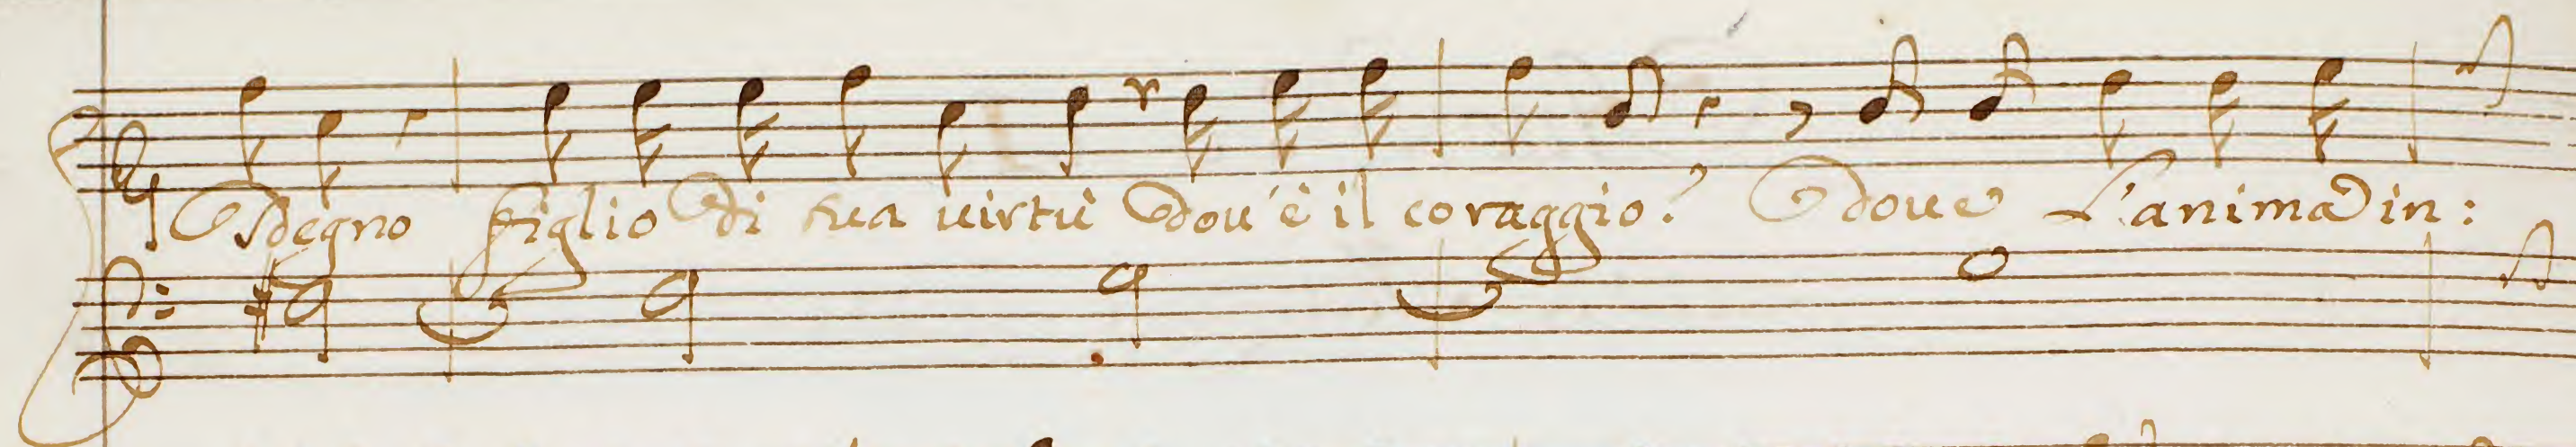 Sdegno figlio di sua uirtù dou'è il coraggio? doue L'anima in: